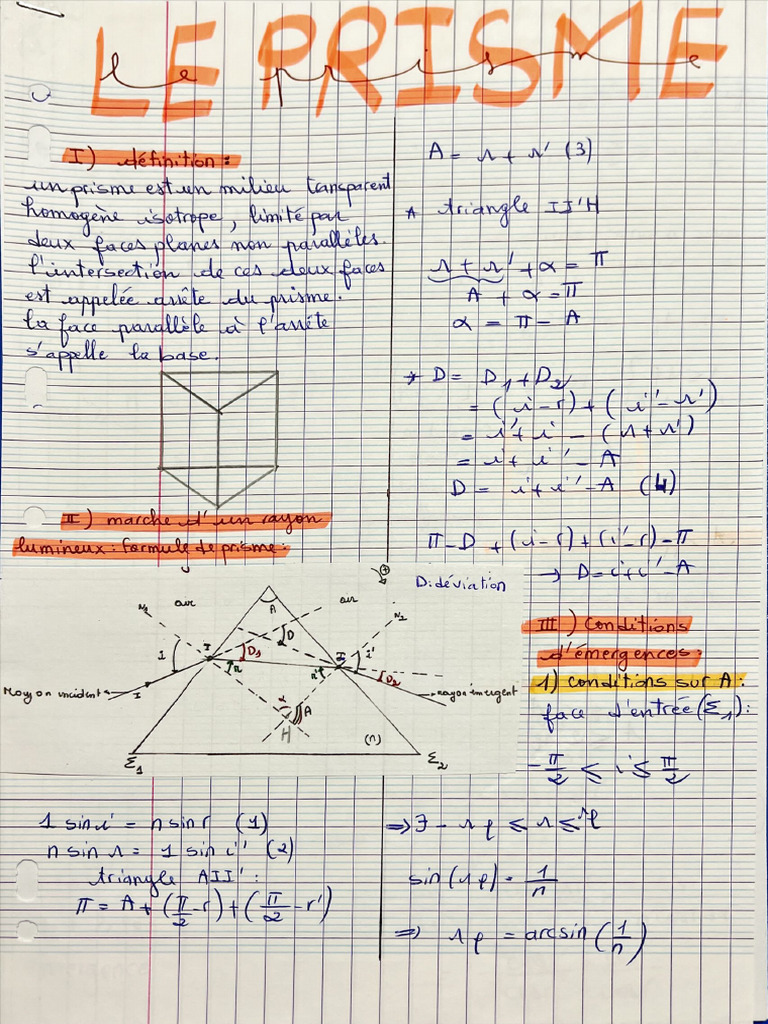 LE PRISME
le prisme
I) définition :
un prisme est un milieu transparent
homogène isotrope, limité par
deux faces planes non parallèles.
l'intersection de ces deux faces
est appelée arrête du prisme.
la face parallèle à l'arrête
s'appelle la base.
II) marche d'un rayon
lumineux : formule de prisme :
air
A
air
N2
N1
D
I
D1
I'
i'
i
r
r'
D2
Rayon incident
I
α
A
H
rayon émergent
(n)
Σ1
Σ2
+
D: déviation
1 sin i = n sin r (1)
n sin r = 1 sin i' (2)
triangle AII' :
π = A + (π/2 - r) + (π/2 - r')
A = r + r' (3)
* triangle II'H
r + r' + α = π
A + α = π
α = π - A
* D = D1 + D2
= (i - r) + (i' - r')
= i' + i - (r + r')
= i + i' - A
D = i + i' - A (4)
π - D + (i - r) + (i' - r) - π
→ D = i + i' - A
III) Conditions
d'émergences :
1) conditions sur A :
face d'entrée (Σ1) :
-π/2 ≤ i ≤ π/2
⇒ ∃ - rℓ ≤ r ≤ rℓ
sin(rℓ) = 1/n
⇒ rℓ = arcsin(1/n)